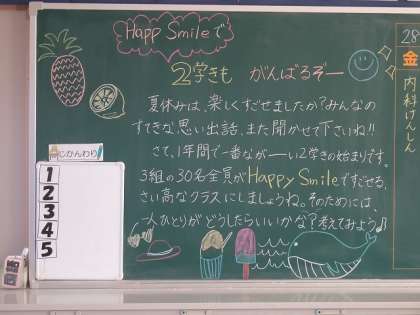 Happy Smileで
2学きも がんばるぞー
夏休みは、楽しくすごせましたか？みんなの
すてきな思い出話、また聞かせて下さいね!!
さて、1年間で一番ながーい2学きの始まりです。
3組の30名全員がHappy Smileですごせる、
さい高なクラスにしましょうね。そのためには、
一人ひとりがどうしたらいいかな？考えてみよう♪
じかんわり
1
2
3
4
5
28
金
内科けんしん